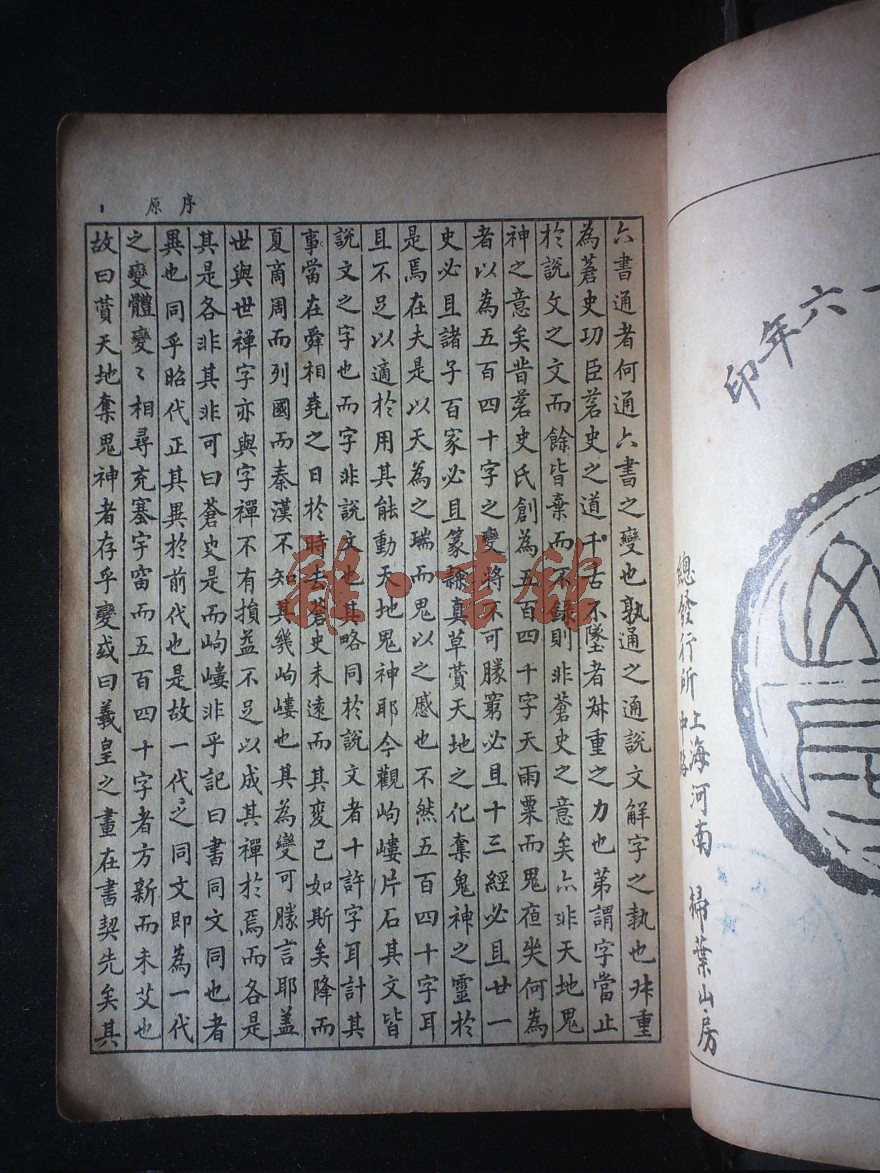 六年印
總發行所 上海河南 掃葉山房
原序
六書通者何通六書之變也孰通之通說文解字之執也叔重
為蒼史功臣蒼史之道千古不墜者叔重之力也第謂字當止
於說文之文而餘皆棄而不錄則非蒼史之意矣亦非天地鬼
神之意矣昔蒼史氏創為五百四十字天雨粟而鬼夜哭何為
者以為五百四十字之變將不可勝窮必且十三經必且廿一
史必且諸子百家必且篆隸真草賛天地之化奪鬼神之靈於
是焉在夫是以天為之瑞而鬼以之感也不然五百四十字耳
且不足以適於用其能動天地鬼神耶今觀岣嶁片石其文皆
說文之字也而字非說文也其略同於說文者十許字耳計其
事當在舜相堯之日於時去蒼史未遠而其変已如斯矣降而
夏商周而列國而秦漢不知其幾岣嶁也其為變可勝言耶蓋
世與世禅字亦與字禪不有損益不足以成其禪於焉而各是
其是各非其非可曰蒼史是而岣嶁非乎記曰書同文同也者
異也同乎昭代正其異於前代也是故一代之同文即為一代
之變體變〻相尋充塞字宙而五百四十字者方新而未艾也
故曰賛天地奪鬼神者存乎變或曰羲皇之畫在書契先矣其
雜·書館